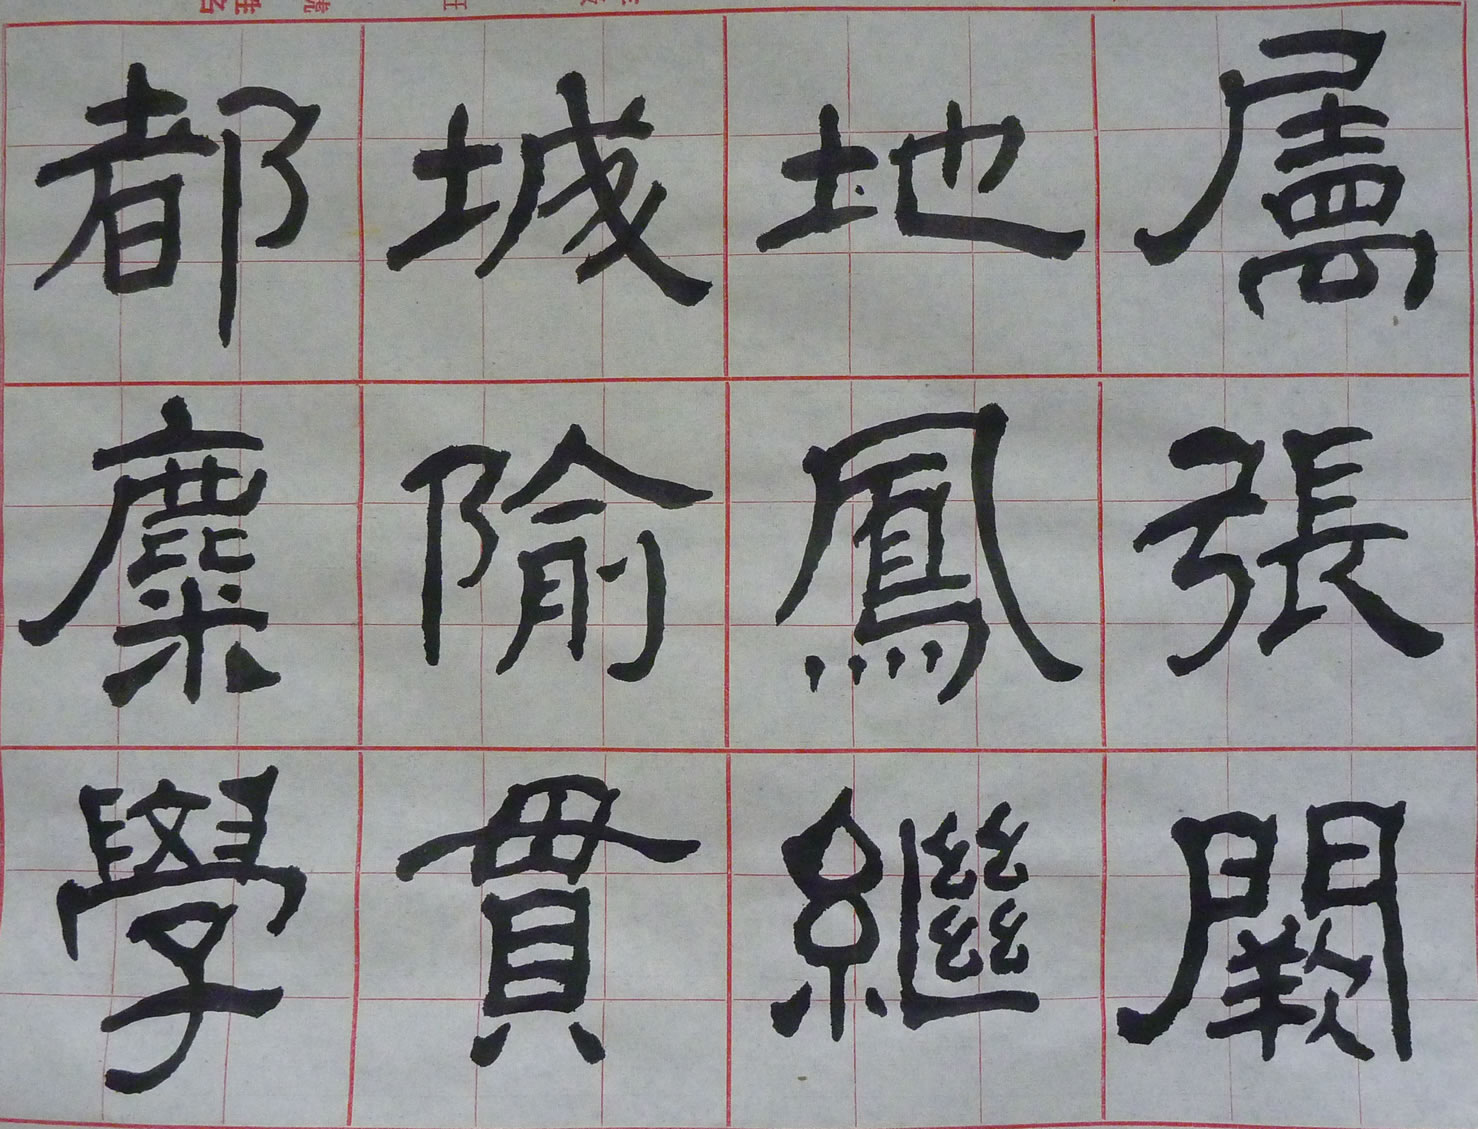 屬張闕
地鳳繼
城隃貫
都麋學